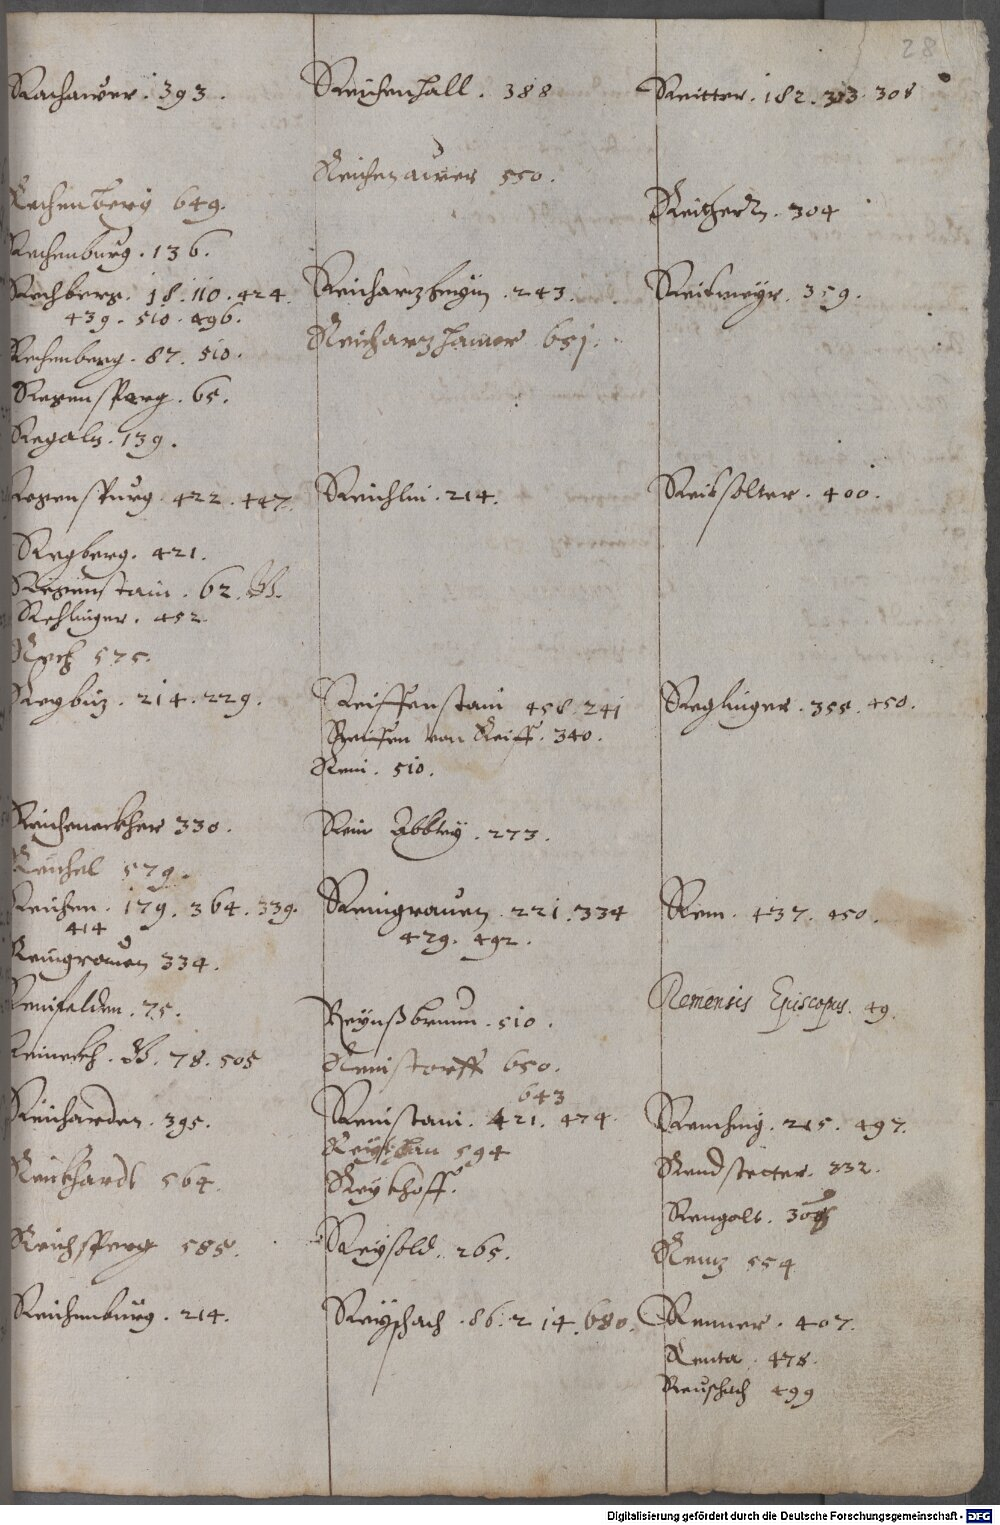 28
Rachawer. 393.
Rechenberg 649.
Rechenburg. 136.
Rechberg. 18. 110. 424.
439. 510. 496.
Rechenberg. 87. 510.
Regensperg. 65.
Regaln. 139.
Regenspurg. 422. 447.
Regberg. 421.
Regenstain. 62.
Rehlinger. 452.
Reck 575.
214. 229.
Reicheneckher 330.
Reichel 579.
Reichen. 179. 364. 339.
414
Reingrauen 334.
Reinfelden. 75.
Reineckh. 78. 505
Reicharden. 395.
Reickhardt 564.
Reichsperg 585.
Reichenburg. 214.
Reichenhall. 388
Reichenawer 550.
243.
Reicharzhamer 651.
Reichlin. 214.
Reiffenstain 458. 241
Reissen von Reiss. 340.
Rein. 510.
Rein Abbtey. 273.
Reingrauen. 221. 334
429. 492.
Reynßbrunn. 510.
Reinstorff 650.
643
Reinstain. 421. 474.
594
Reykhoff.
Reysold. 265.
Reyschach. 86. 214. 680.
Reitter. 182. 313. 308
304
Reitmeyr. 359.
Reissolter. 400.
Reglinger. 355. 450.
Rem. 437. 450.
Remensis Episcopus. 49.
Remching. 215. 497.
Rendstetter. 332.
Rengolt.
Renz 554
Renner. 407.
Renta. 478.
Reuschach 499
Digitalisierung gefördert durch die Deutsche Forschungsgemeinschaft - DFG